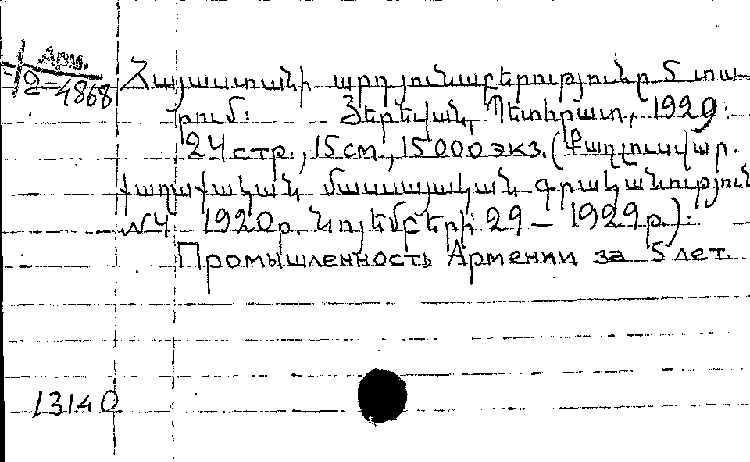 Арм.
2-4868
Հայաստանի արդյունաբերությունը 5 տա-
րում: Յերեվան, Պետհրատ, 1929:
24 стр., 15 см., 15000 экз. (Քաղլուսվար.
քաղաքական մասսայական գրականություն
№4 1920թ. նոյեմբերի 29 – 1929թ.):
Промышленность Армении за 5 лет.
13140